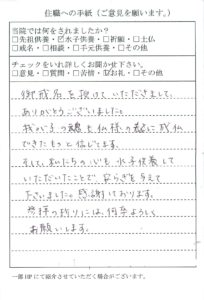 住職への手紙（ご意見を願います。）
当院では何をされましたか？
□先祖供養・☑水子供養・□祈願・□土仏
□戒名・□相談・□手元供養・□その他
チェックをいれ詳しくお聞かせ下さい。
□意見・□質問・□苦情・☑お礼・□その他
御戒名を授けていただきまして、
ありがとうございました。
我が子の魂も仏様の元に成仏
できたものと信じてます。
そして、私たちの心も水子供養して
いただいたことで安らぎを与えて
下さいました。感謝しております。
供養の残りには、何卒よろしく
お願いします。
一部HPにて紹介させていただく場合がございます。